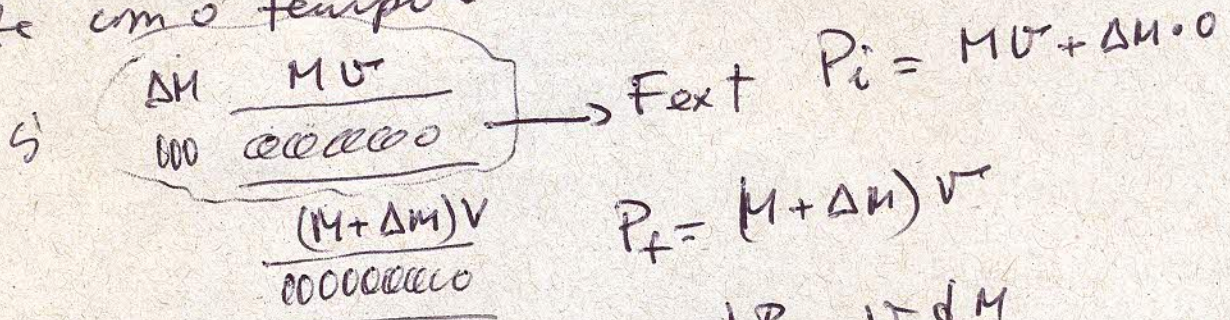 com o tempo
ΔM MV
S'
→ Fext Pi = MV + ΔM·0
(M + ΔM)V
Pf = (M + ΔM) V
V dM